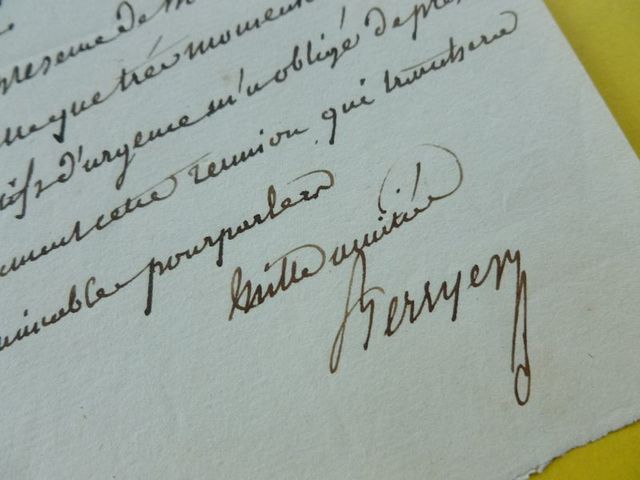 presence de M
que très momen
d'urgence m'a obligé de pre
cette reunion qui tranchera
minable pourparlers
Mille amitiés
Berryer